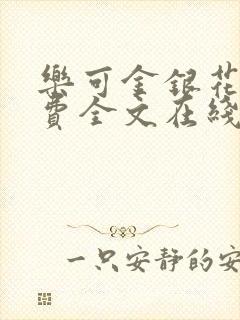 樂可金銀花
費全文在綫
一只安静的安